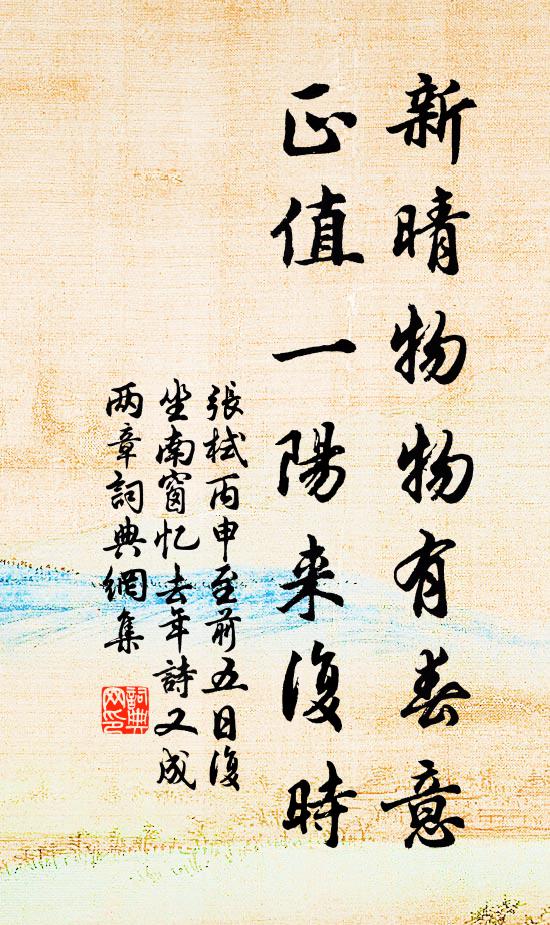 新晴物物有春意
正值一陽来復時
張栻丙申至前五日復
坐南窗忆去年詩又成
两章詞典網集
詞典
网印